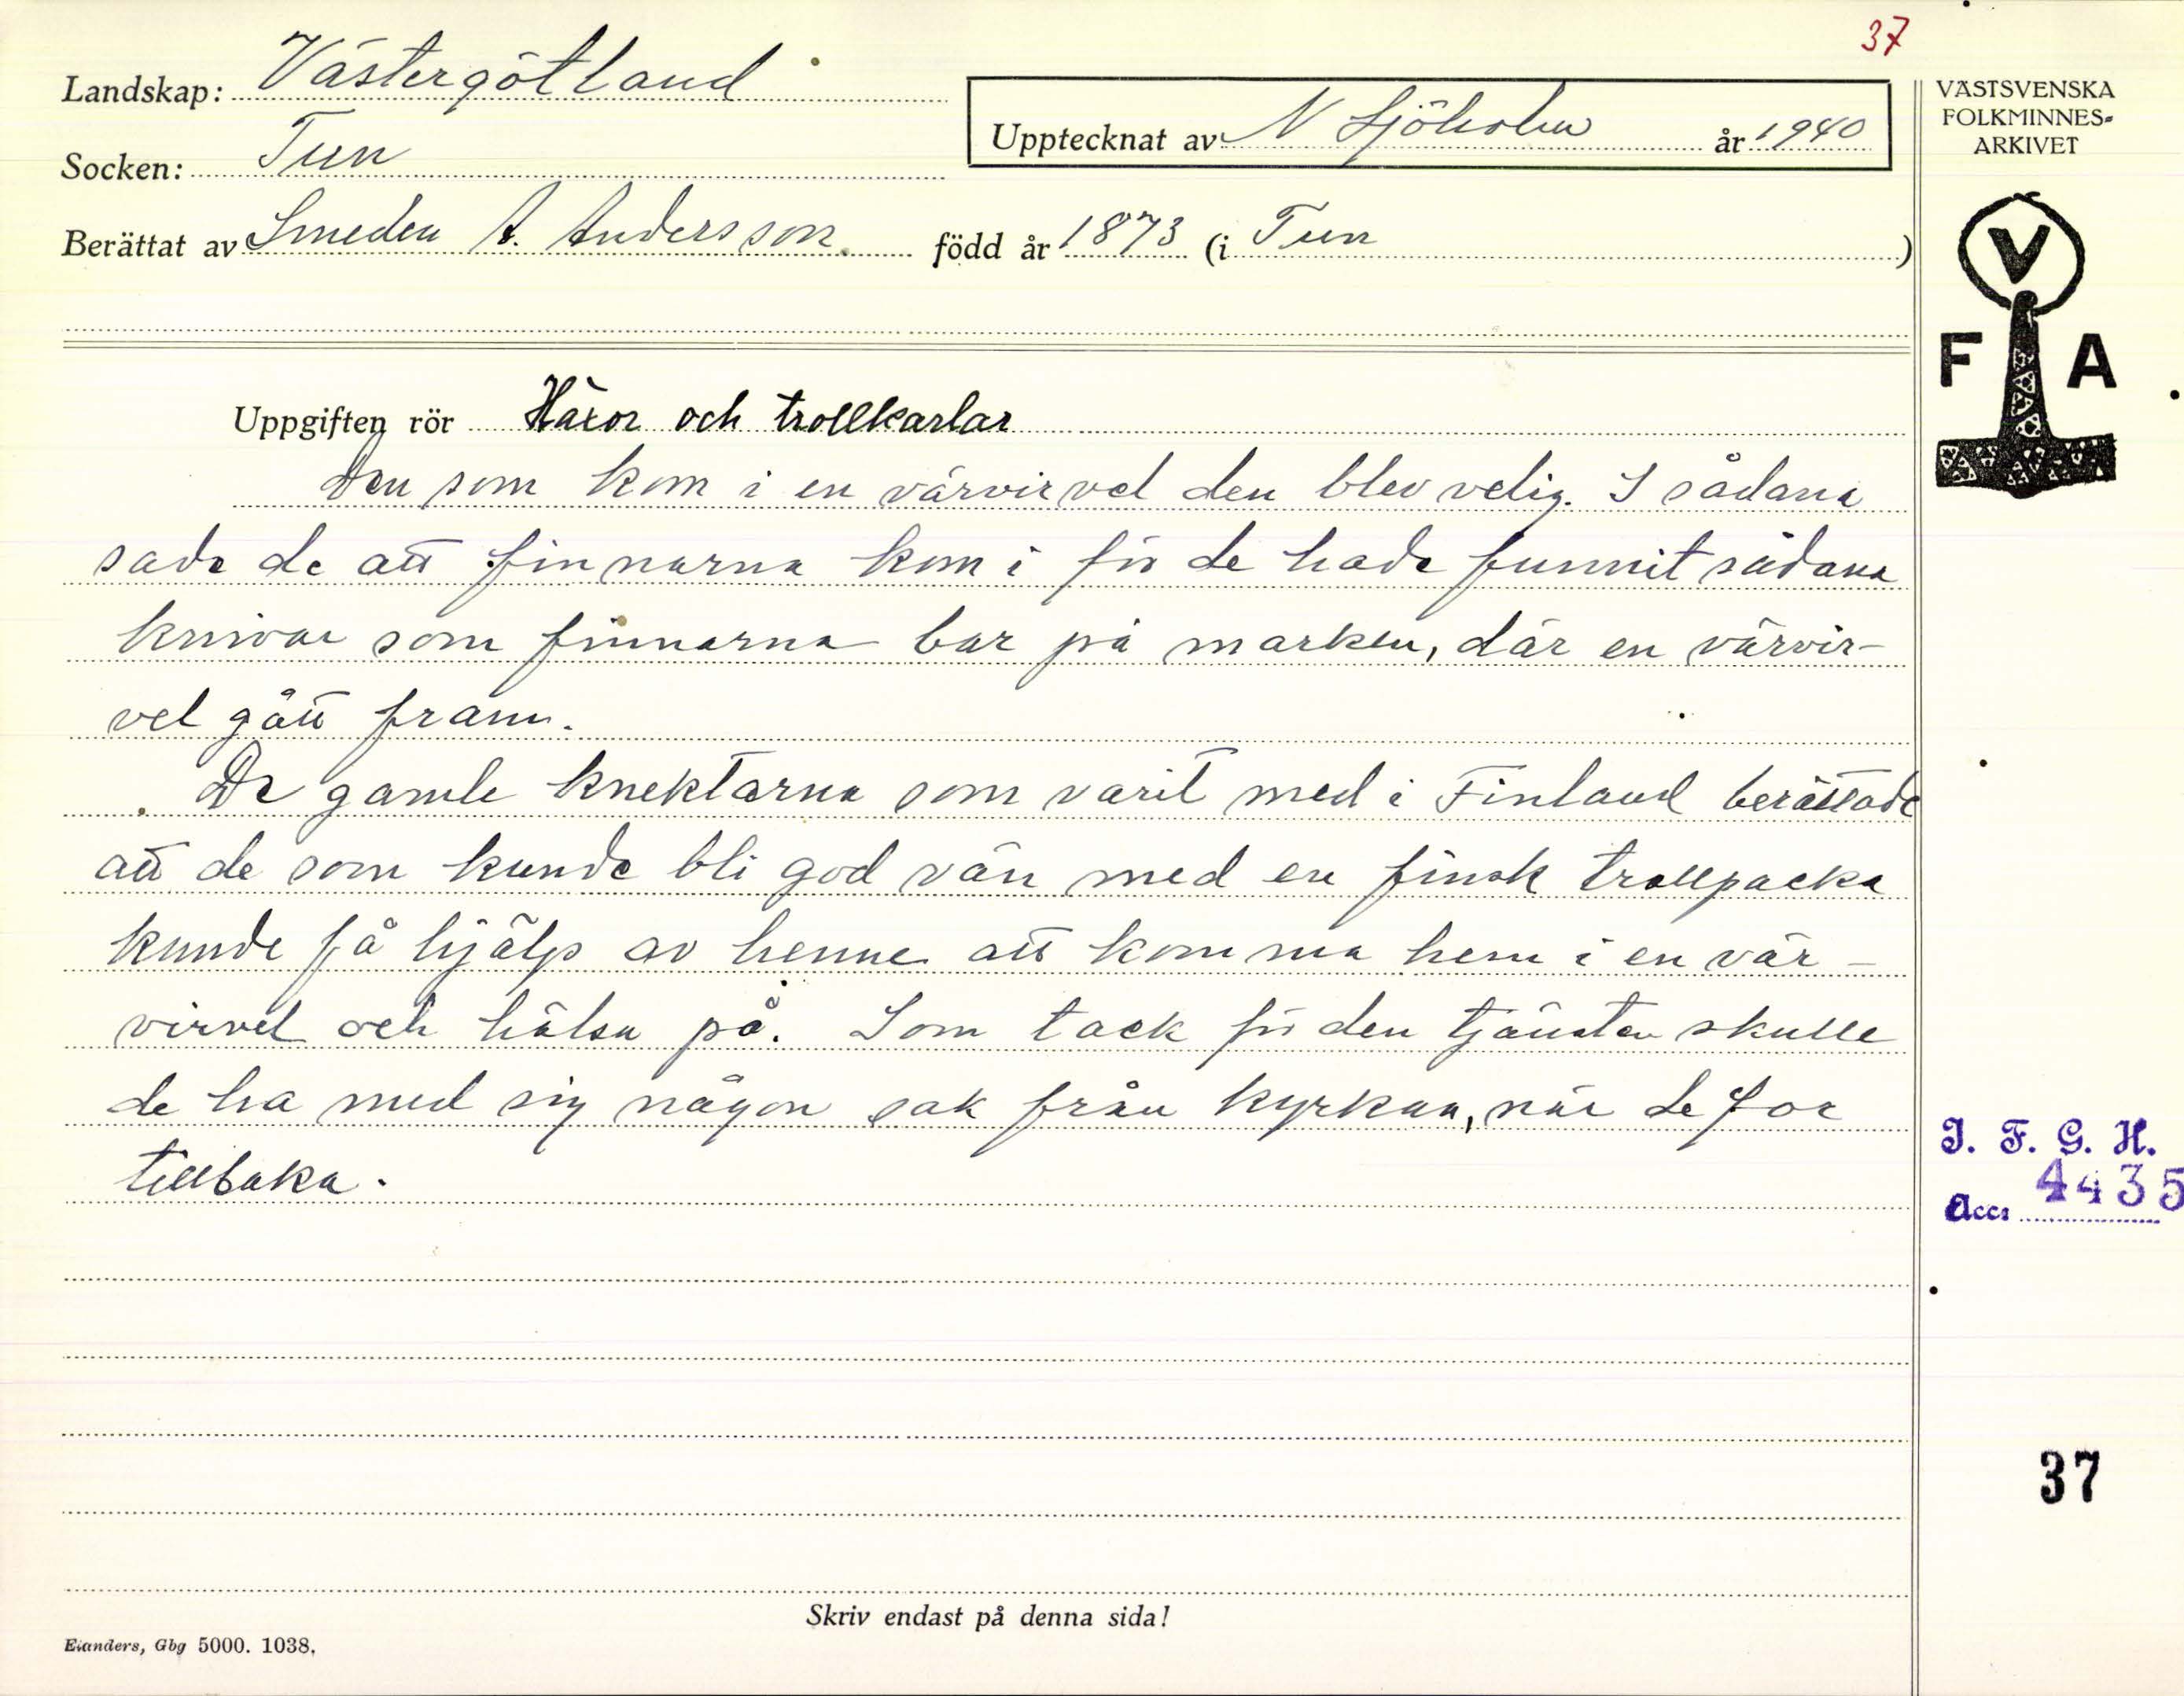 37
Landskap: Västergötland
Upptecknat av N Sjöholm år 1940
Socken: Tun
Berättat av Smeden A. Andersson född år 1873 (i Tun )
VÄSTSVENSKA
FOLKMINNES-
ARKIVET
V
F A
Uppgiften rör Häxor och trollkarlar
Den som kom i en värvirvel den blev velig. I sådana
sade de att finnarna kom i för de hade funnit sådana
knivar som finnarna bar på marken, där en värvir-
vel gått fram.
De gamle knektarna som varit med i Finland berättade
att de som kunde bli god vän med en finsk trollpacka
kunde få hjälp av henne att komma hem i en vär-
virvel och hälsa på. Som tack för den tjänsten skulle
de ha med sig någon sak från kyrkan, när de for
tillbaka.
I. F. G. H.
Acc: 4435
37
Skriv endast på denna sida!
Elanders, Gbg 5000. 1038.